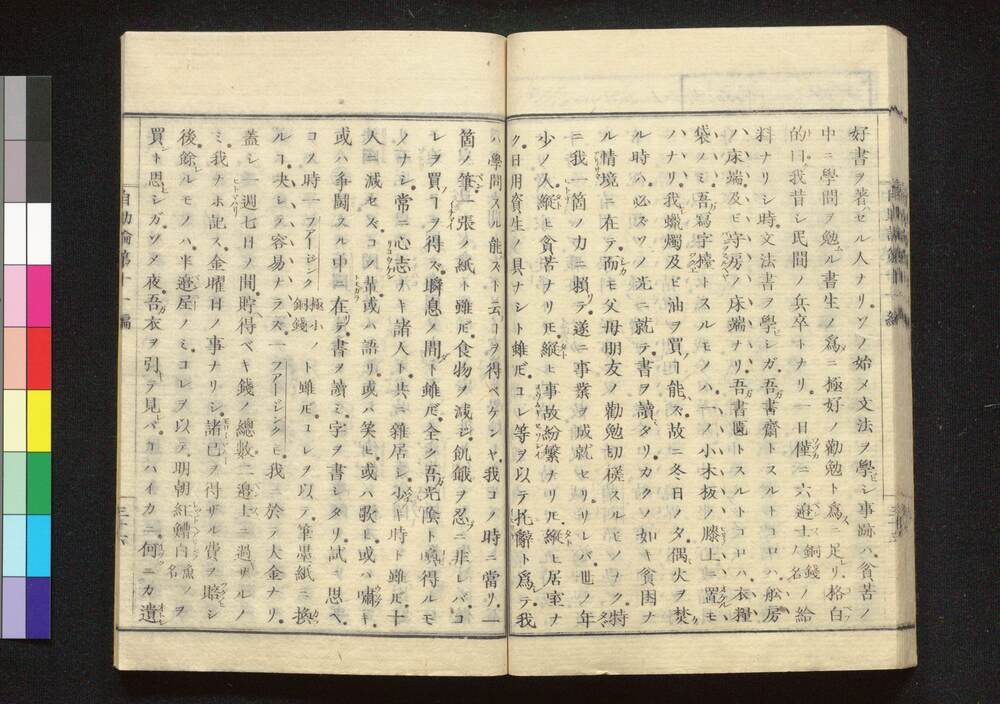 好書ヲ著セル人ナリ。ソノ始メ文法ヲ學ビシ事跡ハ、貧苦ノ
中ニ學問ヲ勉ムル書生ノ爲ニ極好ノ勸勉ト爲ニ足レリ。格白
的曰ク我昔シ民間ノ兵卒トナリ。一日僅ニ六邊士ノ銅錢ノ名ノ給
料ナリシ時。文法書ヲ學ビシガ。吾ガ書齋トスルトコロハ、舩房
ノ床端及ビ守房ノ床端ナリ。吾書匱トスルトコロハ、衣糧
袋ノミ。吾ガ寫字擡トスルモノハ、一ノ小木板ノ膝上ニ置クモ
ノナリ。我蠟燭及ビ油ヲ買フコ能ハズ。故ニ冬日ノ夕偶火ヲ焚ク
ル時ハ。必ズソノ光ニ就テ書ヲ讀ミタリ。カクノ如キ貧困ナ
ル情境ニ在テ。而モ父母朋友ノ勸勉切磋スルモノナク。特
ニ我一箇ノ力ニ賴テ遂ニ事業ヲ成就セリ。サレバ世ノ年
少ノ人縱ヒ貧苦ナリトモ。縱ヒ事故紛繁ナリトモ。縱ヒ居室ナ
ク。日用資生ノ具ナシト雖ドモ。コレ等ヲ以テ托辭ト爲テ。我
ハ學問スル能ハズト云コヲ得ベケンヤ。我コノ時ニ當リ。一
箇ノ筆一張ノ紙ト雖ドモ。食物ヲ減ジ飢餓ヲ忍ブニ非レバ。コ
レヲ買フコヲ得ズ。瞬息ノ間ダト雖ドモ。全ク吾光陰ト爲シ得ルモ
ノナシ。常ニ心志ナキ諸人ト共ニ雜居シ。少キ時ト雖ドモ。十
人ニ減セズ。コノ輩或ハ語リ或ハ笑ヒ。或ハ歌ヒ或ハ嘯キ。
或ハ爭鬪スル中ニ在テ。書ヲ讀ミ字ヲ書シタリ。試ニ思ヘ。
コノ時一ファージンク極小ノ銅錢ト雖ドモ。コレヲ以テ筆墨紙ニ換
ルコ。決シテ容易ナラズ。一ファージンクモ我ニ於ノ大金ナリ。
蓋シ一週七日ノ間。貯得ベキ錢ノ總數二邊士ニ過ザルノ
ミ。我ナホ記ス。金曜日ノ事ナリシ。諸已ヲ得ザル費ヲ賠シ
後。餘レルモノハ。半邊居ノミ。コレヲ以テ明朝紅糟白魚ノ名ヲ
買ント思ヒシガ。ソノ夜吾ガ衣ヲ引テ見レバ。コハイカニ。何ニカ遺
自助論第十一編